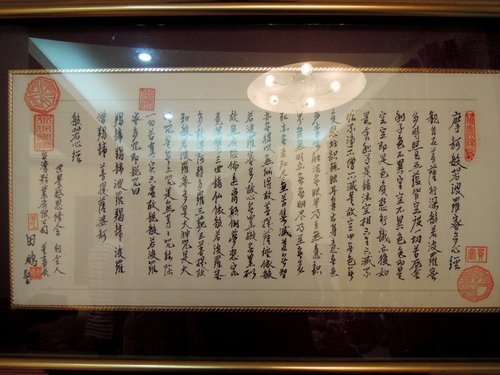 摩訶般若波羅蜜多心經
觀自在菩薩行深般若波羅蜜
多時照見五蘊皆空度一切苦厄舍
利子色不異空空不異色色即是
空空即是色受想行識亦復如
是舍利子是諸法空相不生不滅不
垢不淨不增不減是故空中無色無
受想行識無眼耳鼻舌身意無色
聲香味觸法無眼界乃至無意識
界無無明亦無無明盡乃至無老
死亦無老死盡無苦集滅道無智
亦無得以無所得故菩提薩埵依般
若波羅蜜多故心無罣礙無罣礙
故無有恐怖遠離顛倒夢想究
竟涅槃三世諸佛依般若波羅蜜
多故得阿耨多羅三藐三菩提故
知般若波羅蜜多是大神咒是大
明咒是無上咒是無等等咒能除
一切苦真實不虛故說般若波羅
蜜多咒即說咒曰
揭諦揭諦波羅揭諦波羅
僧揭諦菩提薩婆訶
般若心經
世界 創會人
田